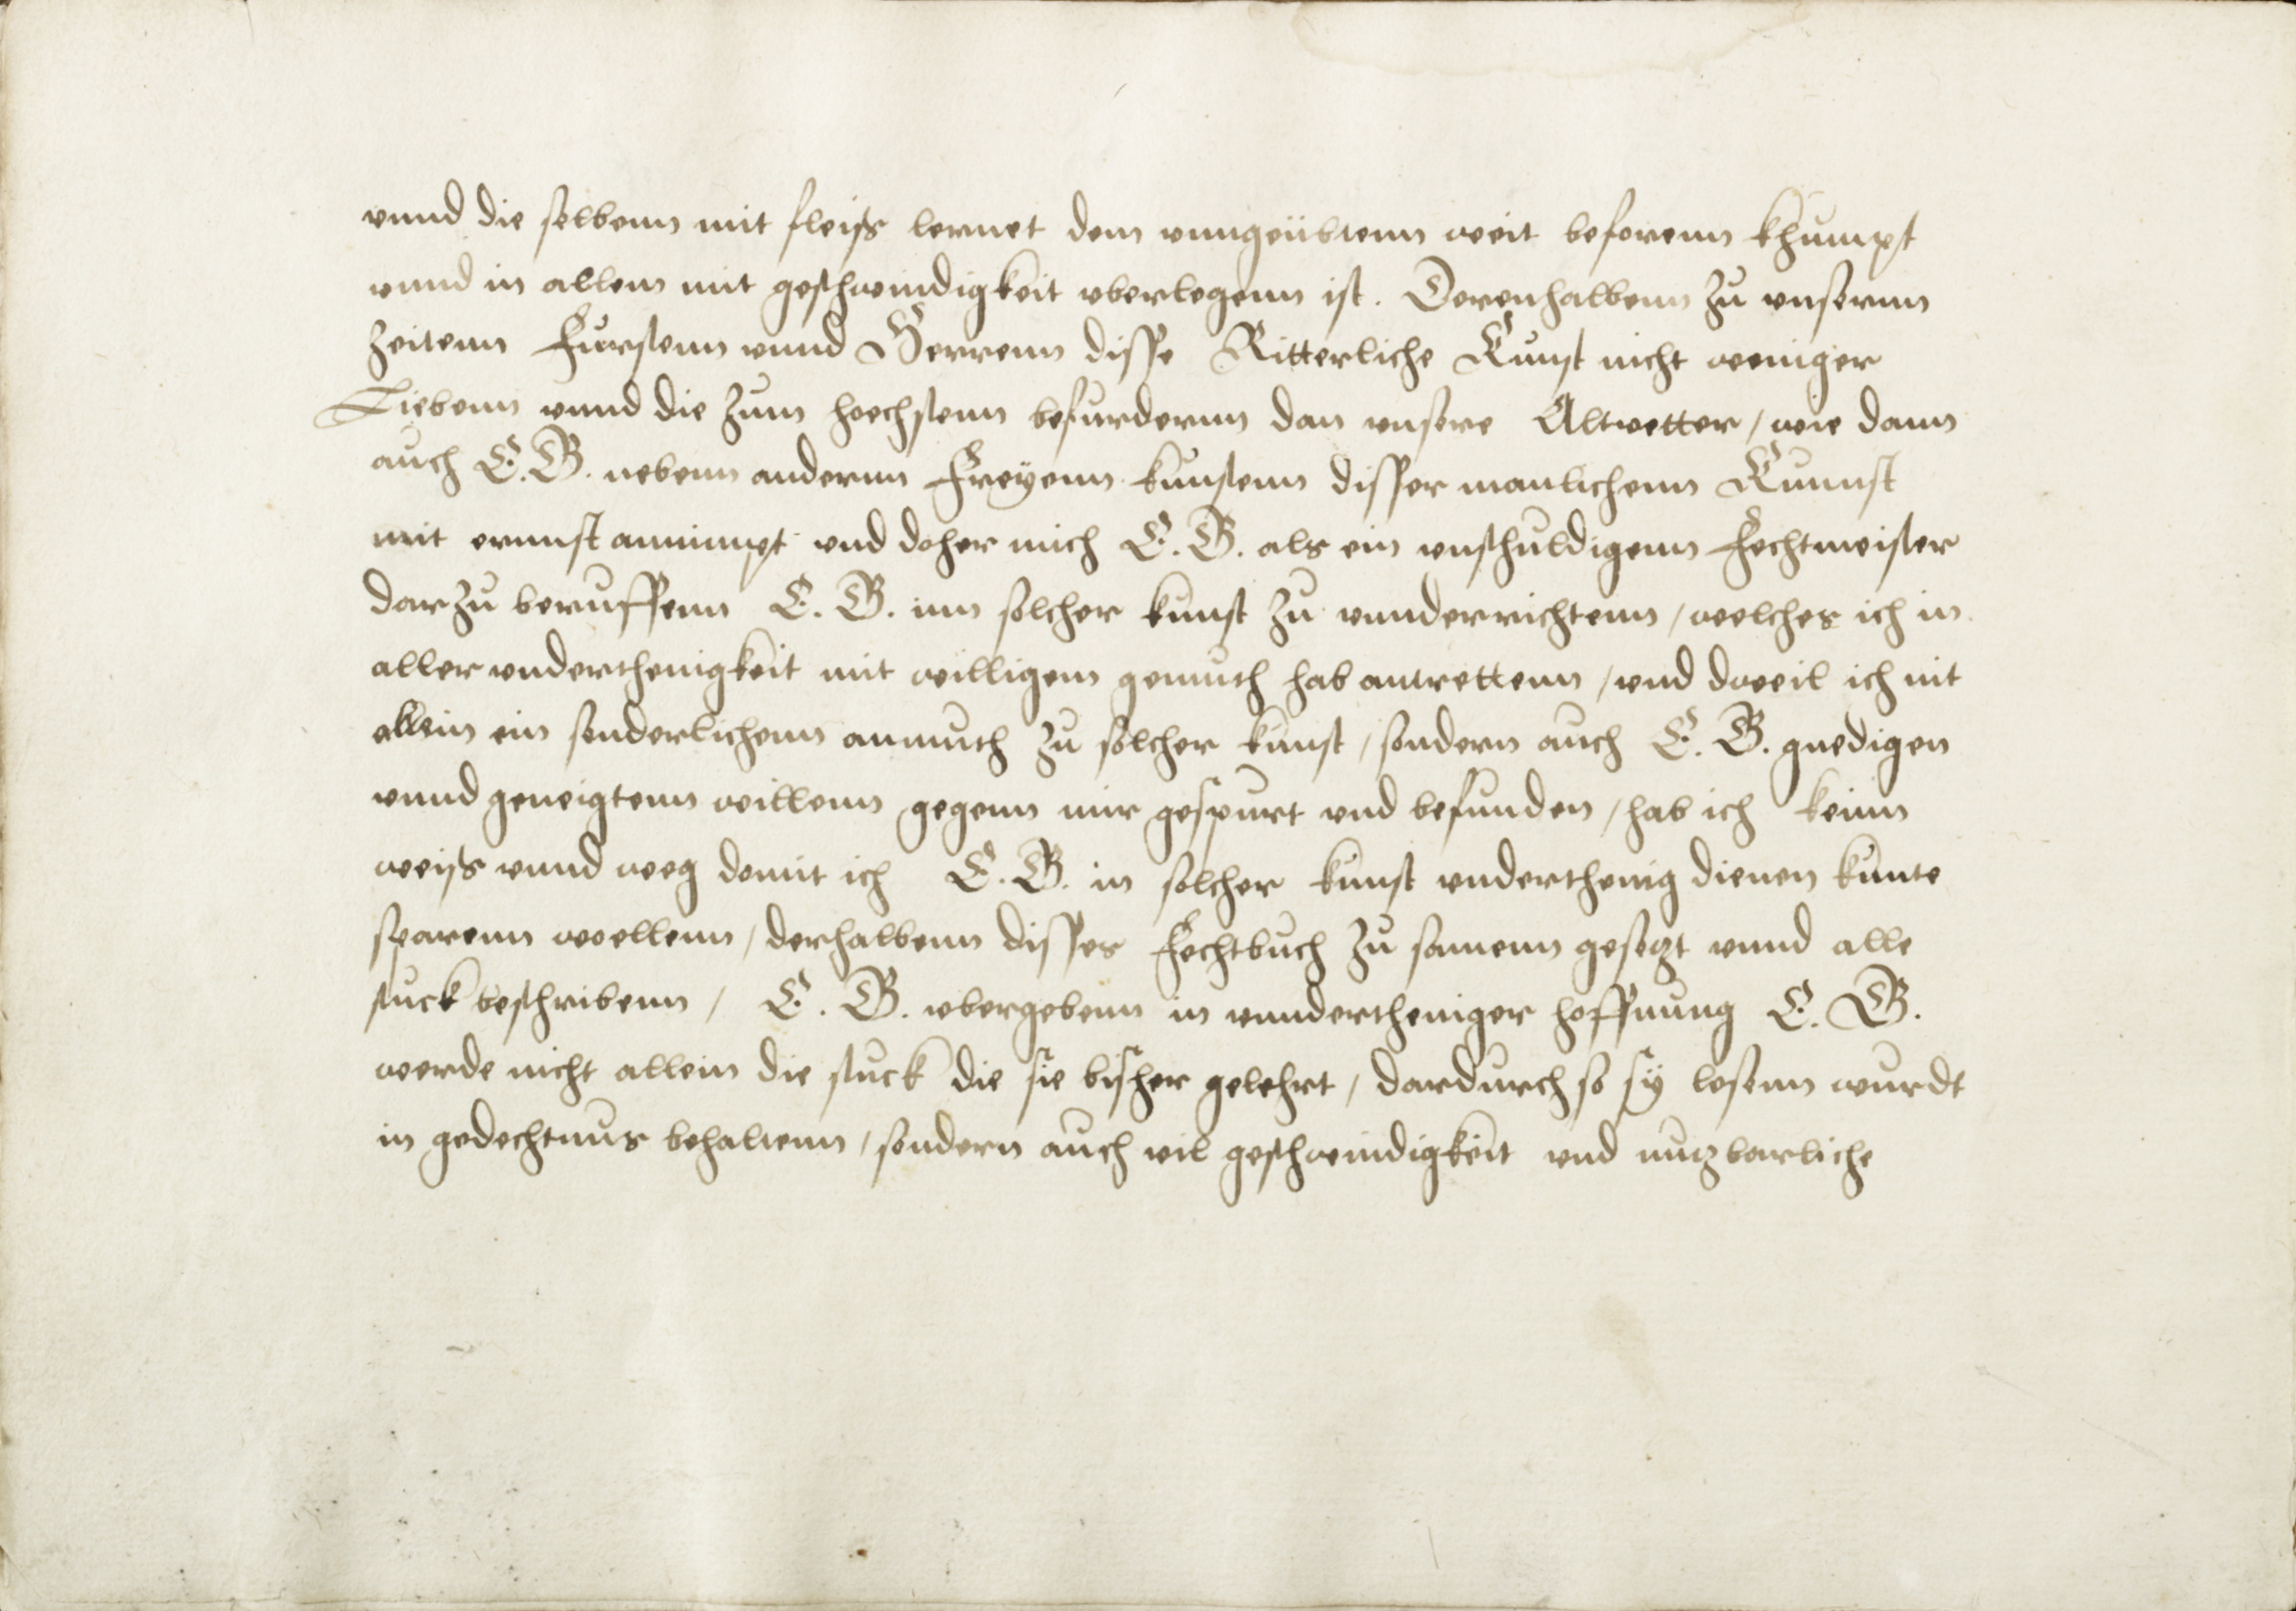 vnnd die selbenn mit fleiß lernet dem vnngeübtenn weit beforenn khumpt
vnnd in allem mit geschwindigkeit vberlegenn ist. Derenhalbenn zu vnsernn
Zeitenn Fürstenn vnnd Herrenn disse Ritterliche Kunst nicht weniger
Liebenn vnnd die zum hoechstenn befurdernn dan vnsere Altvetter / wie dann
auch E. G. nebenn andernn Freyenn künstenn disser manlichenn Kunnst
mit ernnst annimpt vnd doher mich E. G. als ein vnschuldigenn Fechtmeister
darzu beruffenn E. G. inn solcher kunst zu vnnderrichtenn / welches ich in
aller vnderthenigkeit mit willigem gemuth hab antrettenn / vnd dweil ich nit
allein ein sonderlichenn anmuth zu solcher kunst / sondern auch E. G. gnedigen
vnnd geneigtenn willenn gegenn mir gespurt vnd befunden / hab ich keinn
weiß vnnd weg domit ich E. G. in solcher kunst vnderthenig dienen kunte
sparenn woellenn / derhalbenn disses Fechtbuch zu samenn gesetzt vnnd alle
stuck beschribenn / E. G. vbergebenn in vnndertheniger hoffnung E. G.
werde nicht allein die stuck die sie bisher gelehrt / dardurch so sy lesenn wurdt
in gedechtnus behaltenn / sondern auch vil geschwindigkeit vnd nutzbarliche